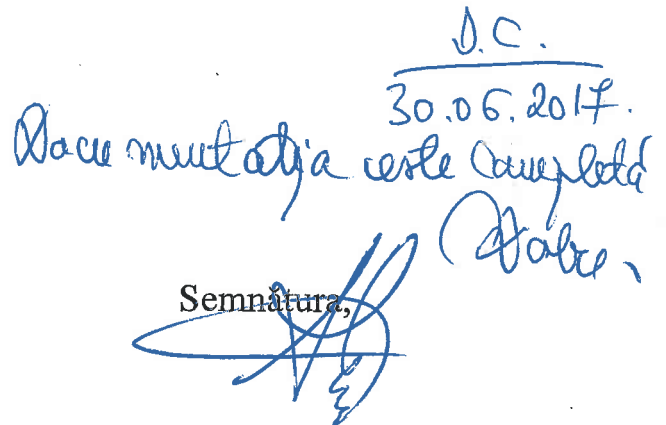 D.C.
30.06.2017.
Documentația este completă
Semnătura,